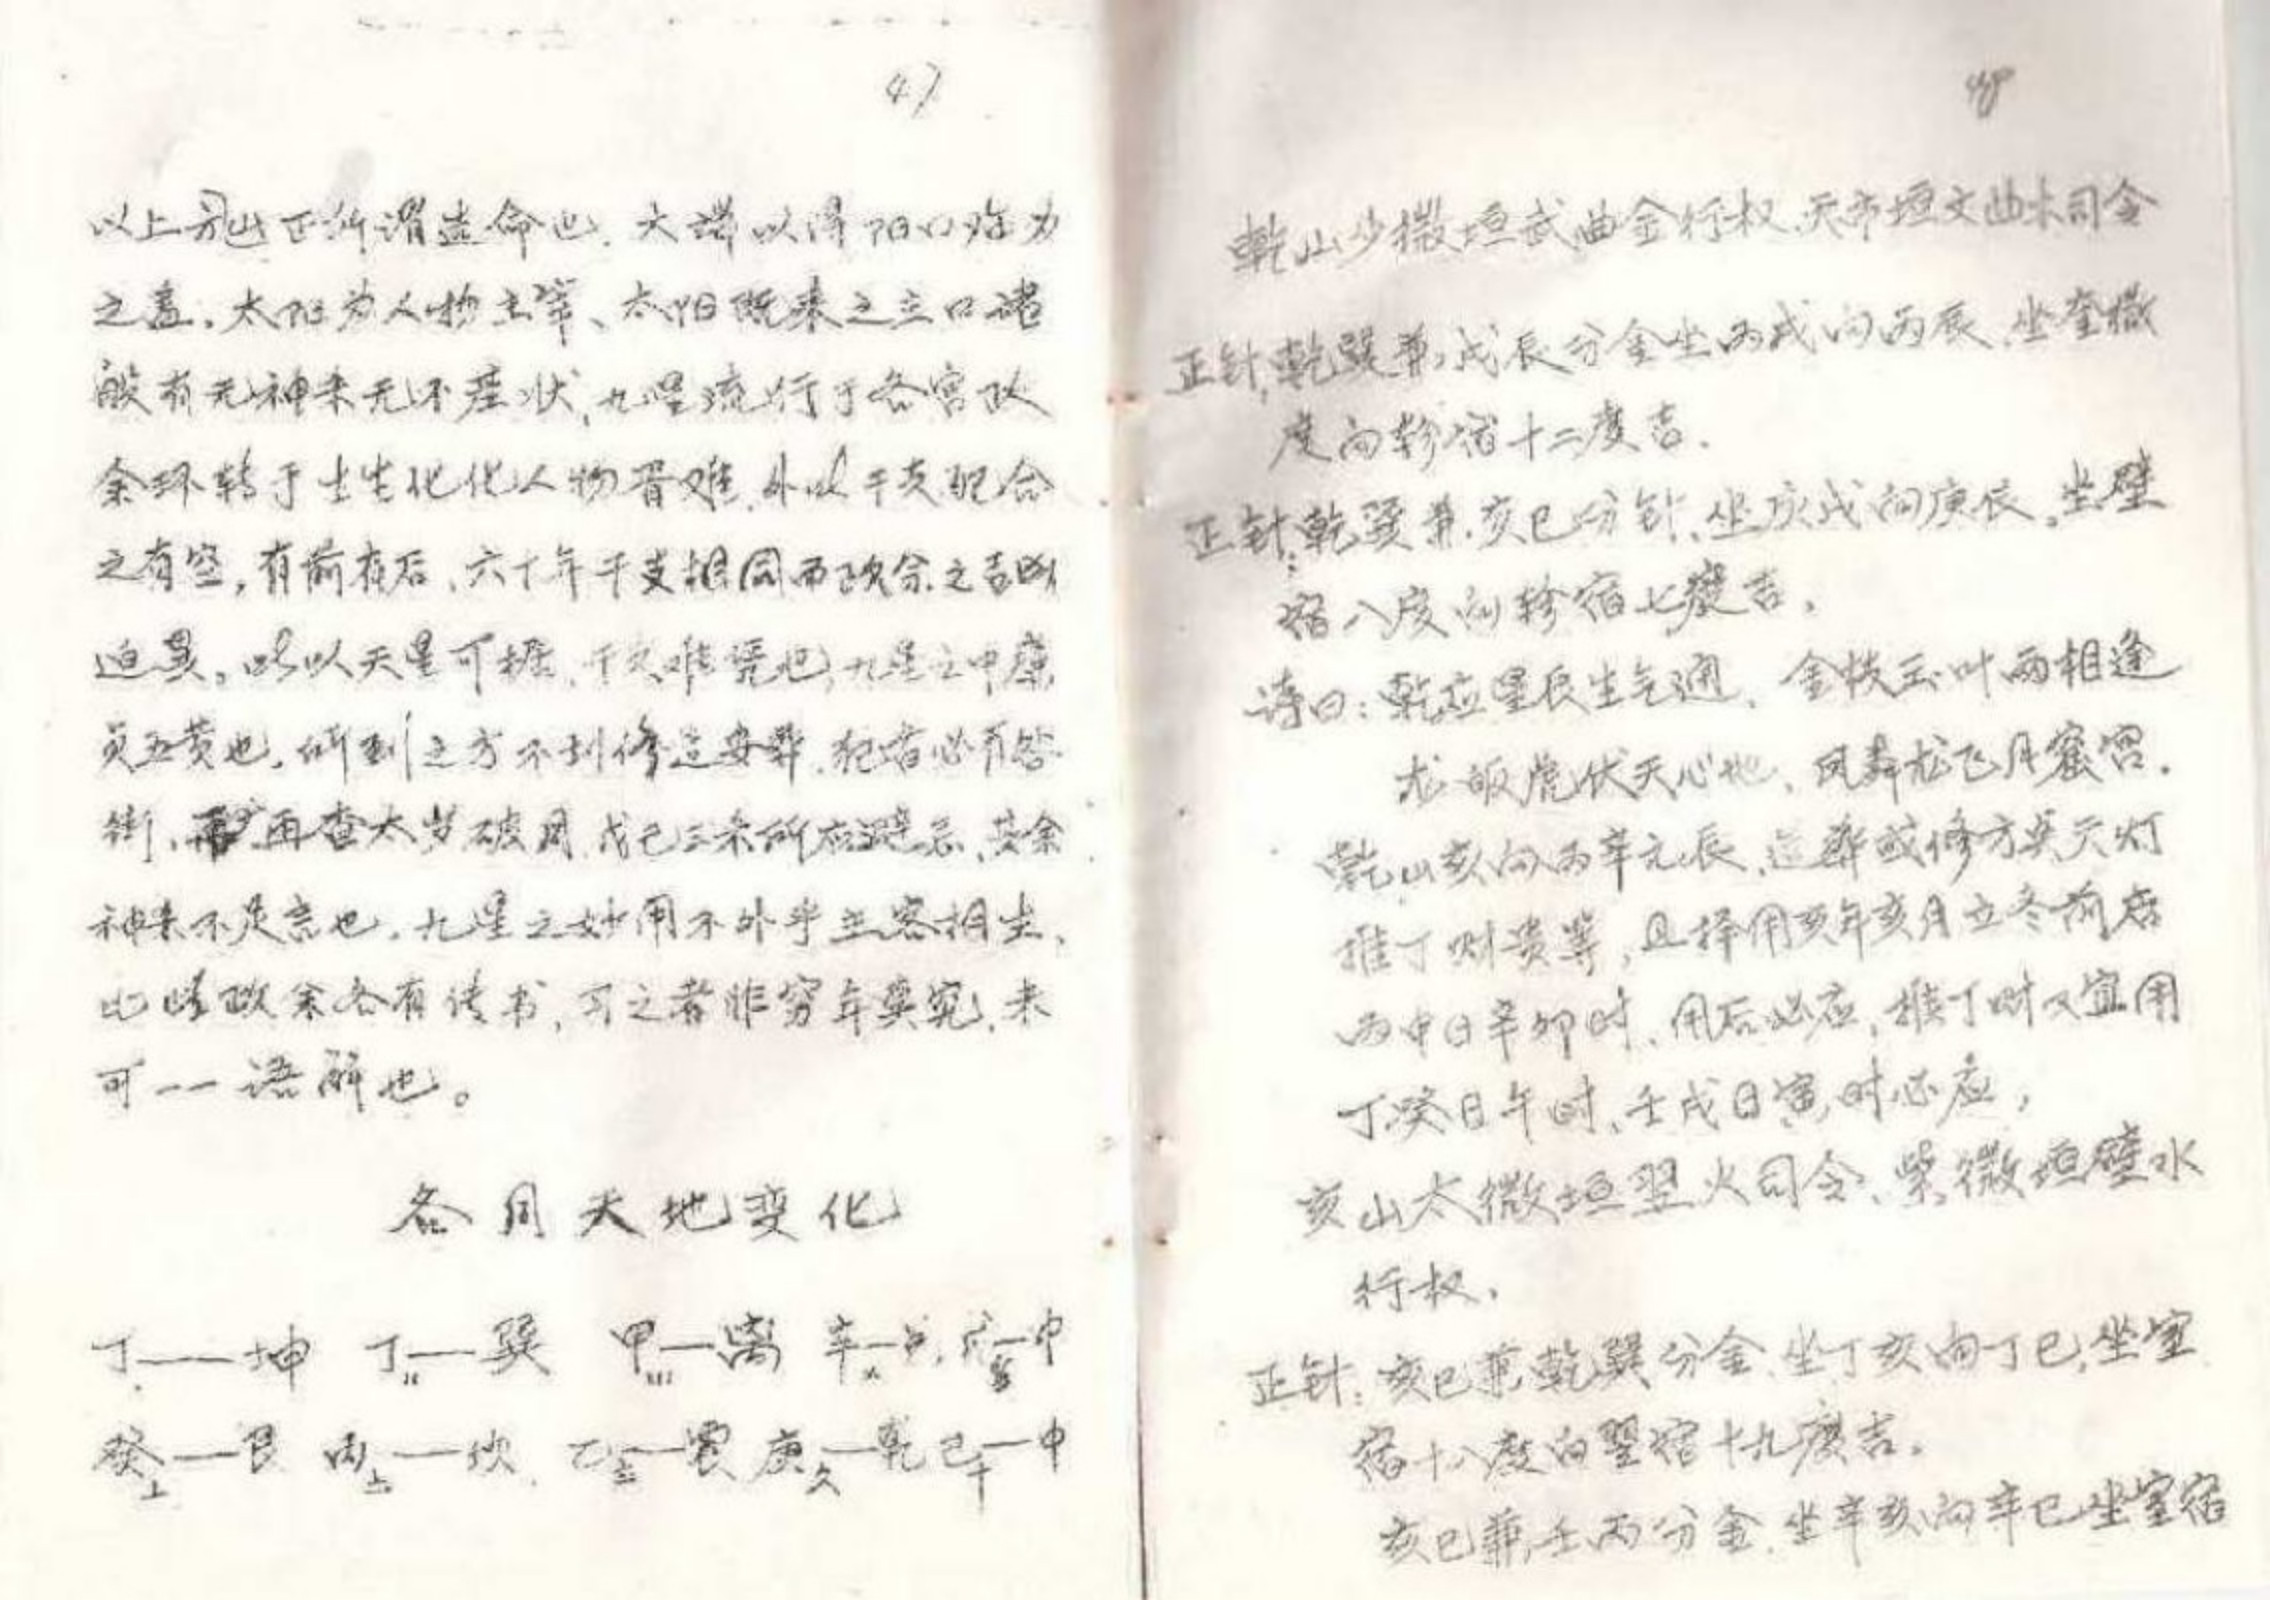 47
以上 正所谓造命也、大 以得阳 为
之 。太阳为人物主宰、太阳既来之
般有无神 无不 ,九星流行于各宫
余环转于 生化化人物 难,外以干支配合
之有空,有前有后、六十年干支相同而 余之吉凶
迥异。 以天星可 、干支难凭也,九星之中廉
贞五黄也,所到之方不利修造安葬,犯者必有
再查太岁破月,戊己三杀所应 忌、其余
神杀不足言也。九星之妙用不外乎 客相生、
余各有传书,习之者非穷年 究,未
可一一语解也。
各月天地变化
丁——坤 丁——巽 甲—离 辛— 中
癸——艮 丙——坎 乙——震 庚—乾 己—中
48
乾山少微垣武曲金行权、天市垣文曲木司令
正针:乾巽兼戌辰分金坐丙戌向丙辰、坐奎
度向轸宿十二度吉.
正针:乾巽兼亥巳分针、坐庚戌向庚辰。坐壁
宿八度向轸宿七度吉。
诗曰:乾应星辰生气通、金枝玉叶两相逢
龙 虎伏天心地、凤舞龙飞月 宫.
乾山亥向丙辛元辰、造葬或修方 天灯
推丁财贵等,且择用亥年亥月立冬前后
丙申日辛卯时、用后必应,推丁财又宜用
丁癸日午时、壬戌日寅时必应,
亥山太微垣翌火司令、紫微垣壁水
行权.
正针:亥巳兼乾巽分金、坐丁亥向丁巳,坐室
宿十八度向翌宿十九度吉.
亥巳兼壬丙分金、坐辛亥向辛巳坐室宿